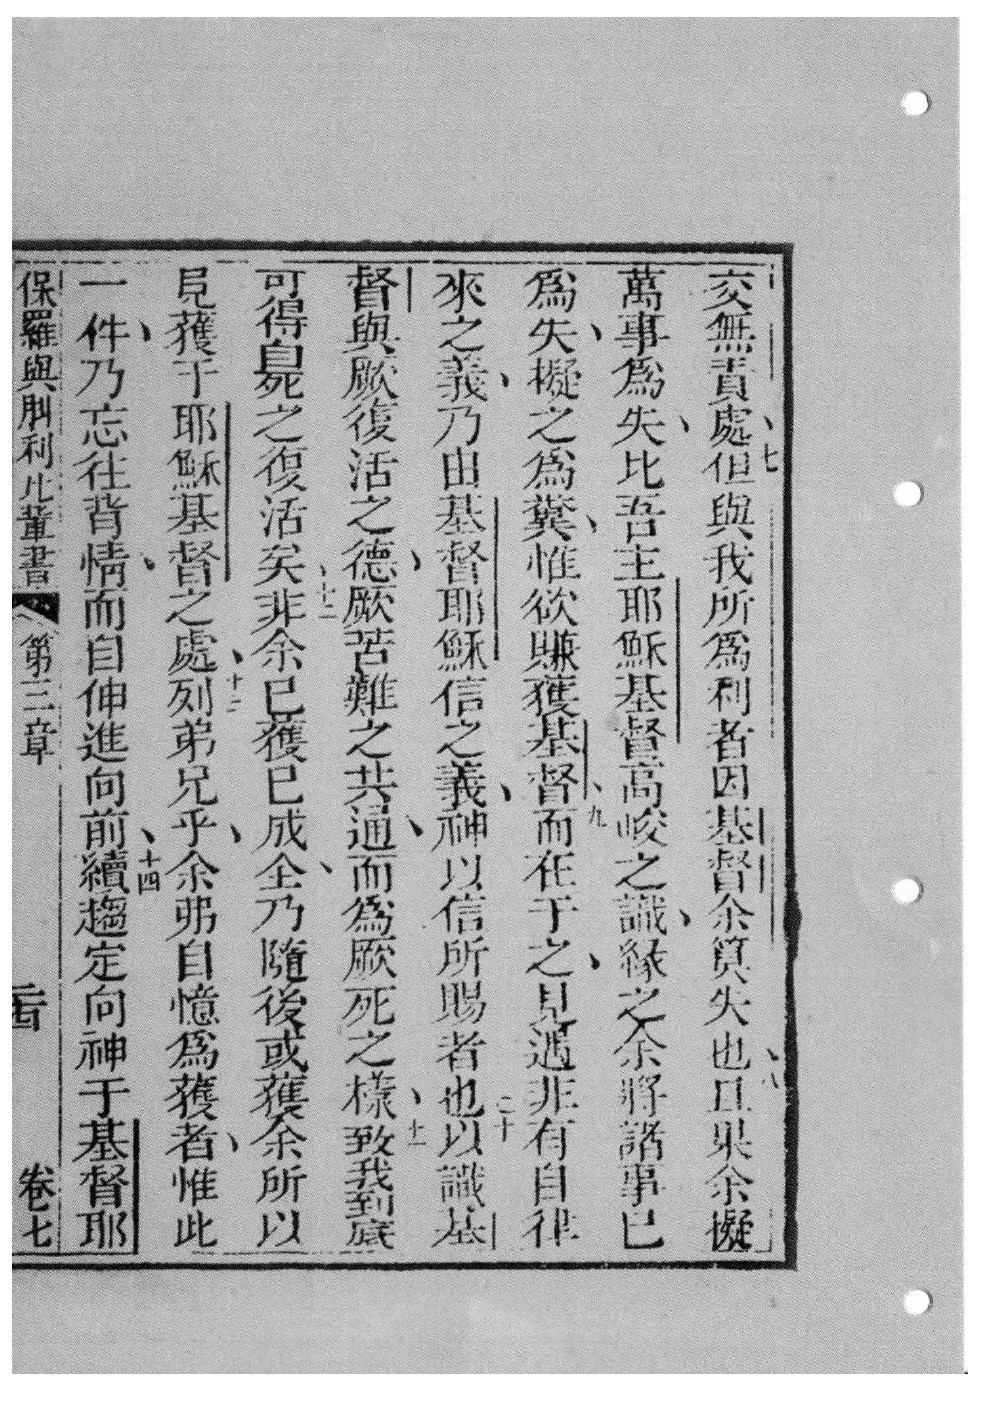 交無責處、七但與我所爲利者因基督余筭失也、八且果余擬
萬事爲失、比吾主耶穌基督高峻之識、緣之余將諸事已
爲失、擬之爲糞、惟欲賺獲基督、九而在于之、見遇非有自律
來之義、乃由基督耶穌信之義、神以信所賜者也、十以識基
督與厥復活之德、厥苦難之共通、而爲厥死之樣、十一致我到底
可得自死之復活矣、十二非余已獲已成全、乃隨後或獲余所以
見獲于耶穌基督之處、十三列弟兄乎、余弗自憶爲獲者、惟此
一件、乃忘往背情、而自伸進向前、十四續趨定向神于基督耶
保羅與肋利比輩書 第三章 卷七